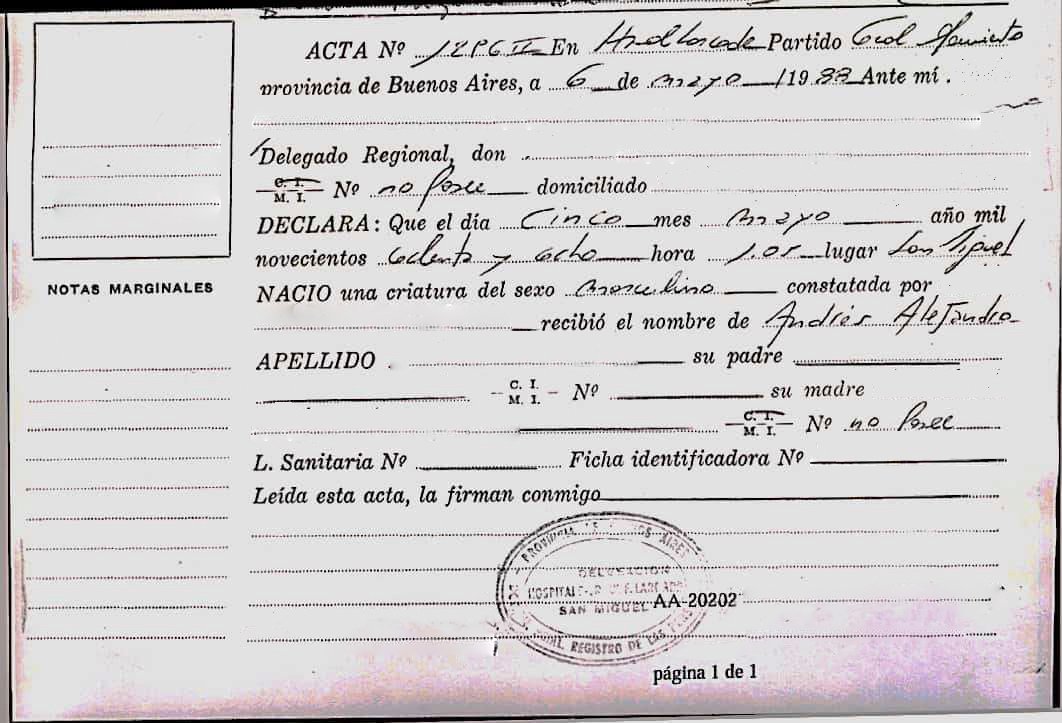 ACTA Nº En Partido Gral Sarmiento
provincia de Buenos Aires, a 6 de mayo /1988 Ante mí.
Delegado Regional, don
C. I.
M. I. Nº no posee domiciliado
DECLARA: Que el día Cinco mes mayo año mil
novecientos ochenta y ocho hora 1.05 lugar San Miguel
NACIO una criatura del sexo masculino constatada por
recibió el nombre de Andrés Alejandro
NOTAS MARGINALES
APELLIDO su padre
C. I.
M. I. Nº su madre
C. I.
M. I. Nº no posee
L. Sanitaria Nº Ficha identificadora Nº
Leída esta acta, la firman conmigo
PROVINCIA AIRES
DELEGACION
HOSPITAL
SAN MIGUEL AA-20202
REGISTRO DE LAS
página 1 de 1